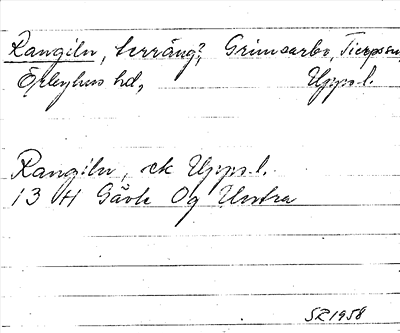 Rangiln, terräng?, Grimsarbo, Tierps sn,
Örbyhus hd, Upps. l.
Rangiln, ek Upps. l.
13 H Gävle Og Untra
SR 1958